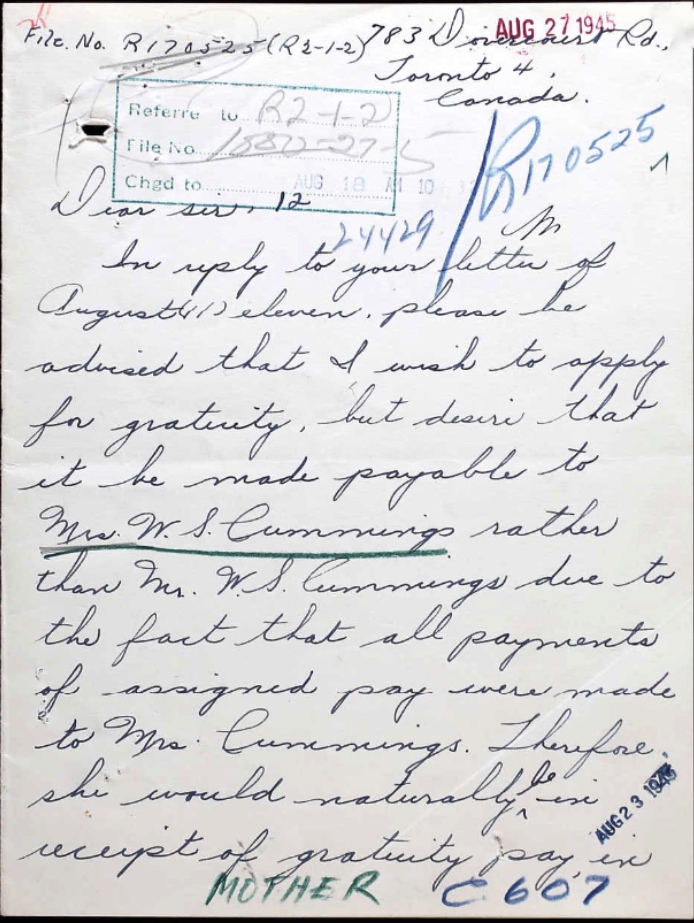 AUG 27 1945
File. No. R170525 (R2-1-2) 783 Dovercourt Rd.,
Toronto 4,
Canada.
Referre to R2-1-2
File No
Chgd to
AUG 18 AM 10
R170525
Dear sir, 12
24429
In reply to your letter of
August (11) eleven, please be
advised that I wish to apply
for gratuity, but desire that
it be made payable to
Mrs. W. S. Cummings rather
than Mr. W. S. Cummings due to
the fact that all payments
of assigned pay were made
to Mrs. Cummings. Therefore,
she would naturally be in
receipt of gratuity pay, in
AUG 23 1945
MOTHER C 607